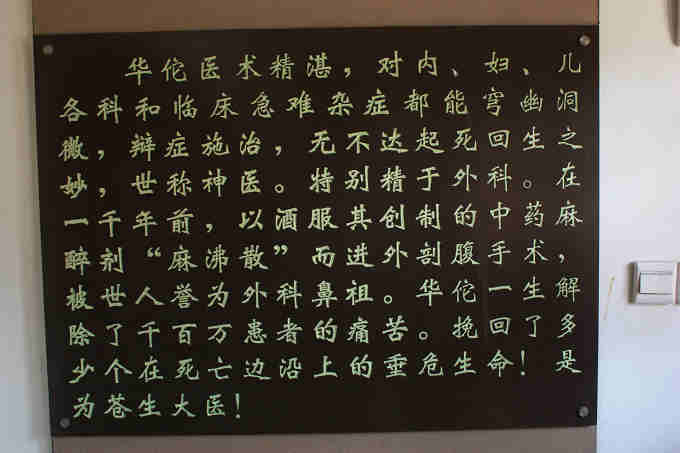 华佗医术精湛，对内、妇、儿
各科和临床急难杂症都能穹幽洞
微，辩症施治，无不达起死回生之
妙，世称神医。特别精于外科。在
一千年前，以酒服其创制的中药麻
醉剂“麻沸散”而进外剖腹手术，
被世人誉为外科鼻祖。华佗一生解
除了千百万患者的痛苦。挽回了多
少个在死亡边沿上的垂危生命！是
为苍生大医！